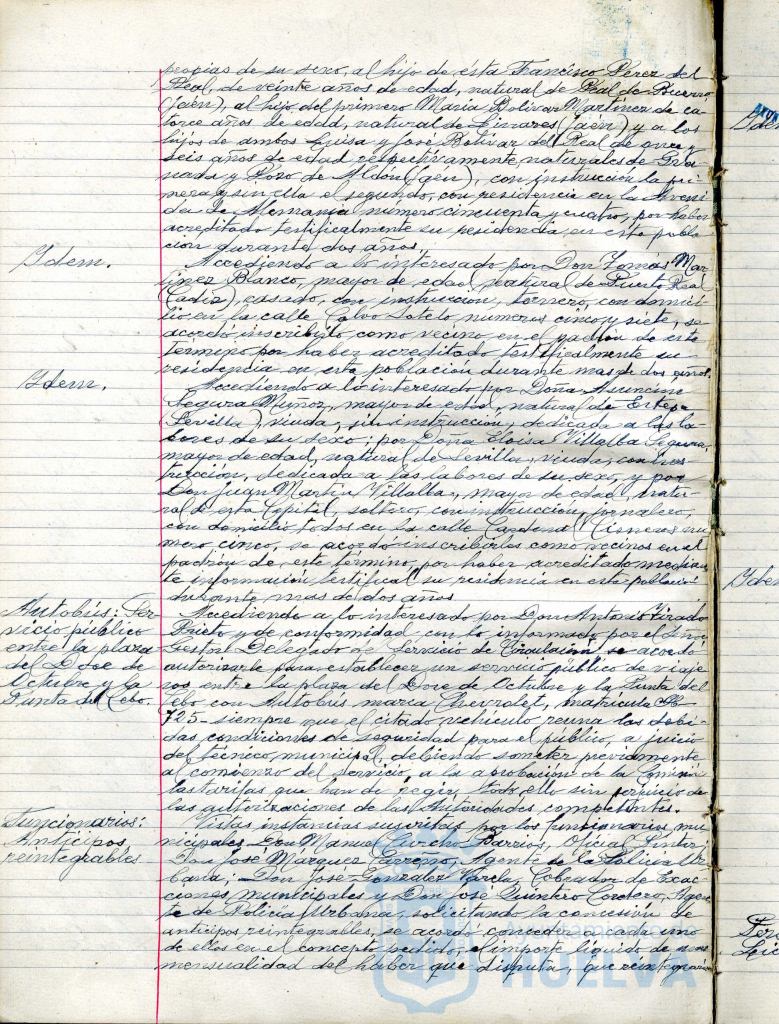 propias de su sexo, al hijo de ésta Francisco Perez del
Real, de veinte años de edad, natural de Peal de Becerro
(Jaén), al hijo del primero Maria Bolivar Martinez de ca-
torce años de edad, natural de Linares (Jaén) y a los
hijos de ambos Luisa y José Bolivar del Real de once y
seis años de edad respectivamente, naturales de Gra-
nada y Pozo de (Jaen), con instrucción la pri-
mera y sin ella el segundo, con residencia en la Aveni-
da de Alemania número cincuenta y cuatro, por haber
acreditado testificalmente su residencia en esta pobla-
ción durante dos años.
Ydem.
Accediendo a lo interesado por Don Tomas Mar-
tinez Blanco, mayor de edad, natural de Puerto Real
(Cadiz), casado, con instrucción, tornero, con domici-
lio en la calle Calvo Sotelo numeros cinco y siete, se
acordó inscribirlo como vecino en el padrón de este
término por haber acreditado testificalmente su
residencia en esta población durante mas de dos años.
Ydem.
Accediendo a lo interesado por Doña Asunción
Segura Muñoz, mayor de edad, natural de Estepa
(Sevilla), viuda, sin instrucción, dedicada a las la-
bores de su sexo; por Doña Eloisa Villalba Segura,
mayor de edad, natural de Sevilla, viuda, con ins-
trucción, dedicada a las labores de su sexo, y por
Don Juan Martin Villalba, mayor de edad, natu-
ral de esta Capital, soltero, con instrucción, jornalero,
con domicilio todos en la calle Cardenal Cisneros nú-
mero cinco, se acordó inscribirlos como vecinos en el
padrón de este término, por haber acreditado median-
te información testifical su residencia en esta población
durante mas de dos años
Autobús: Ser-
vicio público
entre la plaza
del Doce de
Octubre y la
Punta del Sebo.
Accediendo a lo interesado por Don Antonio Tirado
Prieto y de conformidad con lo informado por el Señor
Gestor Delegado de Servicio de Circulación se acordó
autorizarle para establecer un servicio público de viaje-
ros entre la plaza del Doce de Octubre y la Punta del
Sebo con Autobús marca Chevrolet, matrícula
725- siempre que el citado vehículo reuna las debi-
das condiciones de seguridad para el público, a juicio
del técnico municipal, debiendo someter previamente
al comienzo del servicio, a la aprobación de la Comisión
las tarifas que han de regir, todo ello sin perjuicio de
las autorizaciones de las Autoridades competentes.
Funcionarios:
Anticipos
reintegrables
Vistas instancias suscritas por los funcionarios mu-
nicipales Don Manuel Barrios, Oficial
Don José Márquez Carreño, Agente de la Policia Ur-
bana; Don José Gonzalez Varela, Cobrador de Exac-
ciones municipales y Don José Quintero Cordero, Agen-
te de Policia Urbana, solicitando la concesión de
anticipos reintegrables, se acordó conceder a cada uno
de ellos en el concepto pedido, el importe líquido de una
mensualidad del haber que disfruta, que reintegrarán
HUELVA